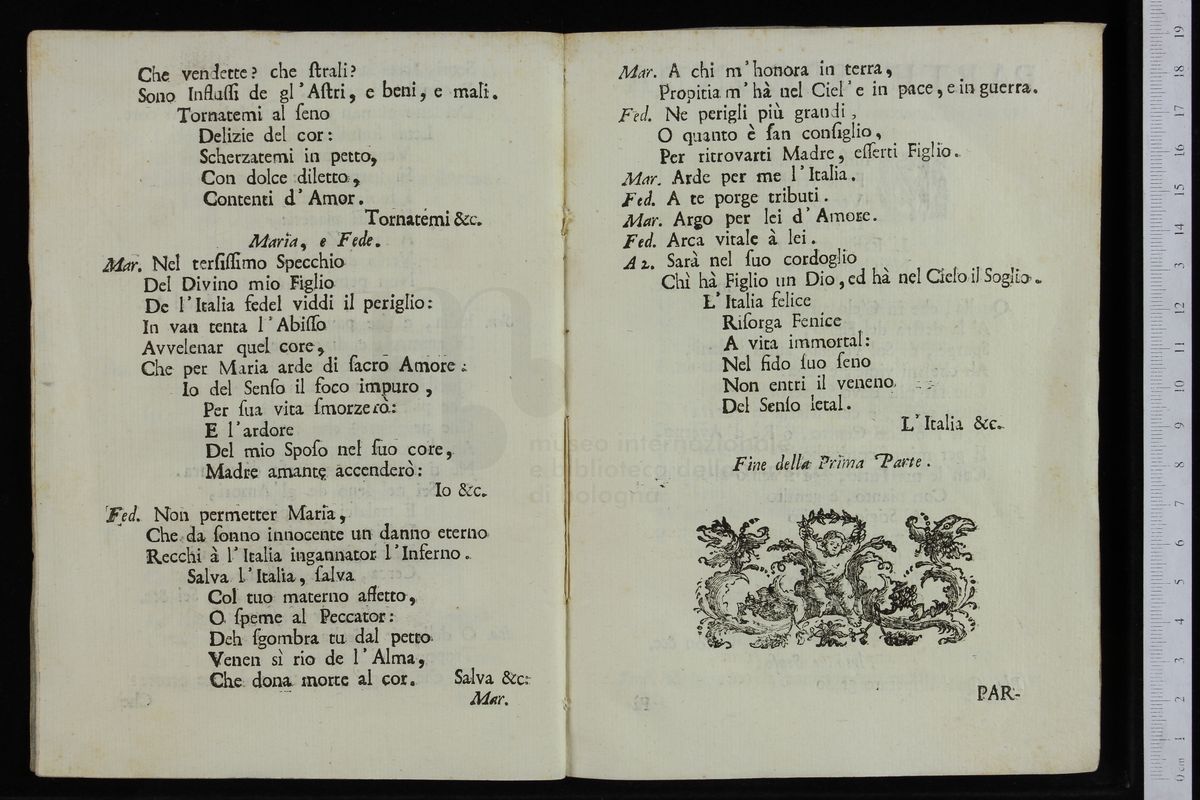 Che vendette? che ſtrali?
Sono Influſſi de gl'Aſtri, e beni, e mali.
Tornatemi al ſeno
Delizie del cor:
Scherzatemi in petto,
Con dolce diletto,
Contenti d'Amor.
Tornatemi &c.
Maria, e Fede.
Mar. Nel terſiſſimo Specchio
Del Divino mio Figlio
De l'Italia fedel viddi il periglio:
In van tenta l'Abiſſo
Avvelenar quel core,
Che per Maria arde di ſacro Amore:
Io del Senſo il foco impuro,
Per ſua vita ſmorzerò:
E l'ardore
Del mio Spoſo nel ſuo core,
Madre amante accenderò:
Io &c.
Fed. Non permetter Maria,
Che da ſonno innocente un danno eterno
Recchi à l'Italia ingannator l'Inferno.
Salva l'Italia, ſalva
Col tuo materno affetto,
O ſpeme al Peccator:
Deh ſgombra tu dal petto
Venen sì rio de l'Alma,
Che dona morte al cor. Salva &c.
Mar.
Mar. A chi m'honora in terra,
Propitia m'hà nel Ciel'e in pace, e in guerra.
Fed. Ne perigli più grandi,
O quanto è ſan conſiglio,
Per ritrovarti Madre, eſſerti Figlio.
Mar. Arde per me l'Italia.
Fed. A te porge tributi.
Mar. Argo per lei d'Amore.
Fed. Arca vitale à lei.
A 2. Sarà nel ſuo cordoglio
Chì hà Figlio un Dio, ed hà nel Cielo il Soglio.
L'Italia felice
Riſorga Fenice
A vita immortal:
Nel fido ſuo ſeno
Non entri il veneno
Del Senſo letal.
L'Italia &c.
Fine della Prima Parte.
PAR-
museo internazionale
e biblioteca della
di bologna
0 cm 1 2 3 4 5 6 7 8 9 10 11 12 13 14 15 16 17 18 19